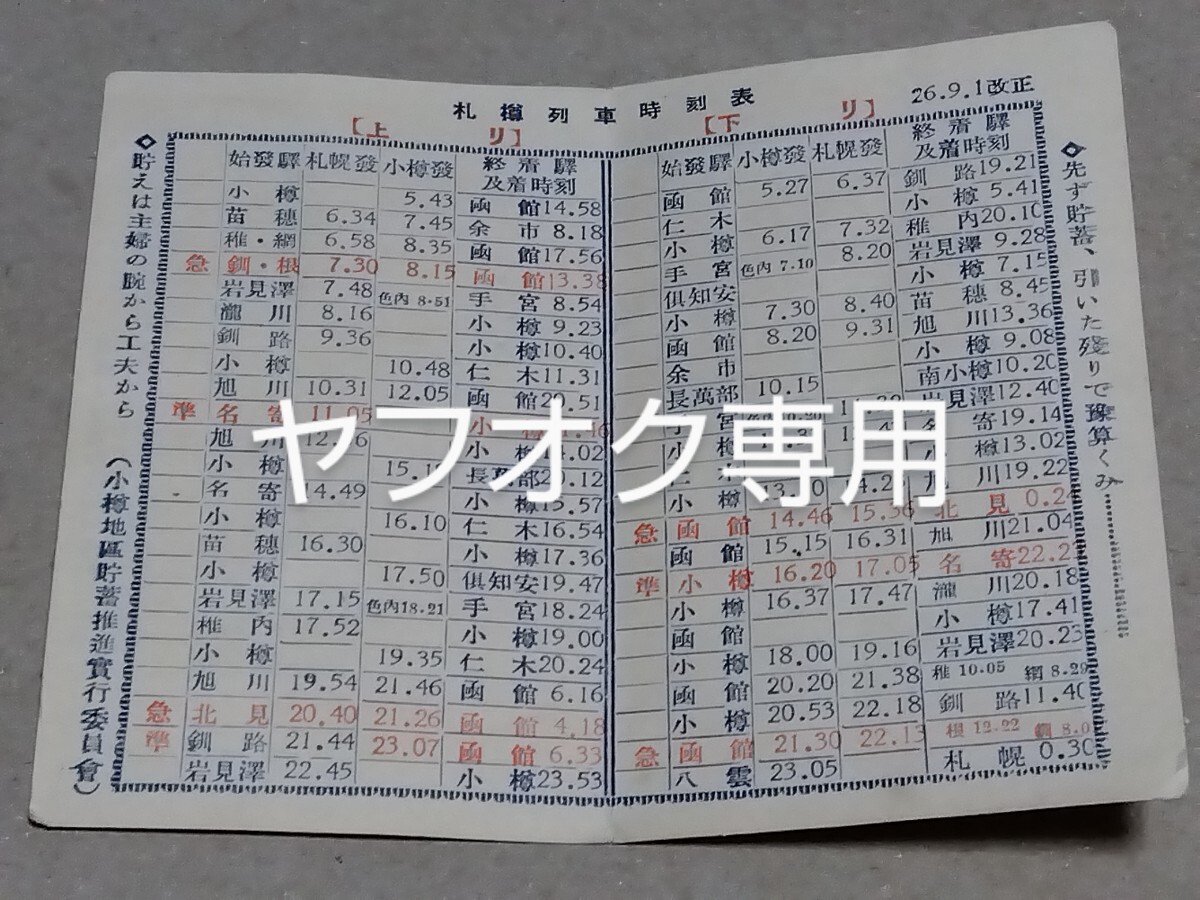 札樽列車時刻表
26.9.1改正
【上り】
【下り】
◇貯えは主婦の腕から工夫から
(小樽地區貯蓄推進實行委員會)
始發驛 札幌發 小樽發 終着驛及着時刻
小樽 5.43 函館14.58
苗穂 6.34 7.45 余市 8.18
稚・網 6.58 8.35 函館17.56
急 釧・根 7.30 8.15 函館13.38
岩見澤 7.48 色内8.51 手宮 8.54
瀧川 8.16 小樽 9.23
釧路 9.36 小樽10.40
小樽 10.48 仁木11.31
旭川 10.31 12.05 函館20.51
準 名寄 11.05 小
旭川 小樽 .02
小樽 長萬部20.12
名寄 14.49 小樽15.57
小樽 16.10 仁木16.54
苗穂 16.30 小樽17.36
小樽 17.50 俱知安19.47
岩見澤 17.15 色内18.21 手宮18.24
稚内 17.52 小樽19.00
小樽 19.35 仁木20.24
旭川 19.54 21.46 函館 6.16
急 北見 20.40 21.26 函館 4.18
準 釧路 21.44 23.07 函館 6.33
岩見澤 22.45 小樽23.53
始發驛 小樽發 札幌發 終着驛及着時刻
函館 5.27 6.37 釧路19.21
仁木 小樽 5.41
小樽 6.17 7.32 稚内20.10
手宮 色内7.10 8.20 岩見澤 9.28
俱知安 小樽 7.15
小樽 7.30 8.40 苗穂 8.45
函館 8.20 9.31 旭川13.36
余市 小樽 9.08
長萬部 10.15 南小樽10.20
宮 岩見澤12.40
寄19.14
樽13.02
小樽 旭川19.22
急 函館 14.46 15.56 北見 0.24
函館 15.15 16.31 旭川21.04
準 小樽 16.20 17.05 名寄22.2
小樽 16.37 17.47 瀧川20.18
函館 小樽17.41
小樽 18.00 19.16 岩見澤20.23
函館 20.20 21.38 稚10.05 網8.29
小樽 20.53 22.18 釧路11.40
急 函館 21.30 22.13 根12.22 網8.0
八雲 23.05 札幌 0.30
◇先ず貯蓄、引いた残りで豫算くみ
ヤフオク専用